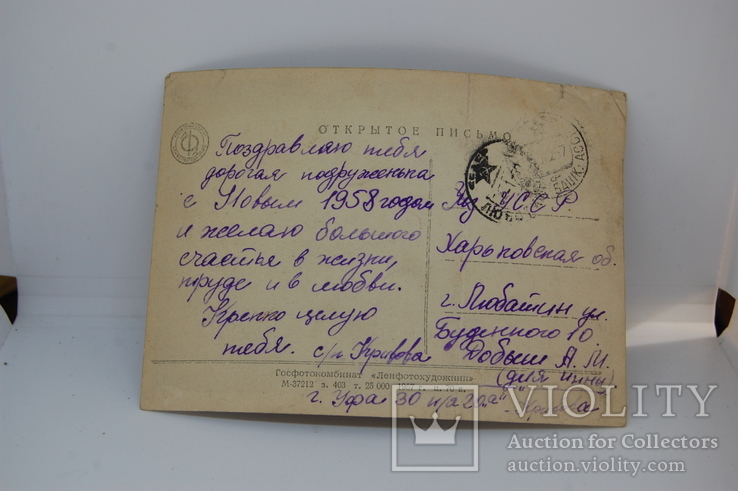 ОТКРЫТОЕ ПИСЬМО
Поздравляю тебя
дорогая подруженька
с Новым 1958 годом
и желаю большого
счастья в жизни,
труде и в любви.
Крепко целую
тебя.
УССР
Харьковская об.
г. Люботин ул.
Буденного 10.
Добыш А. М.
(для Инны)
Госфотокомбинат «Ленфотохудожник»
М-37212 з. 403 т. 25 000
г. Уфа 30
БАШК. АССР
VIOLITY
Auction for Collectors
auction.violity.com